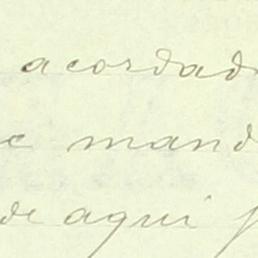 acordad
e mand
de aqui p